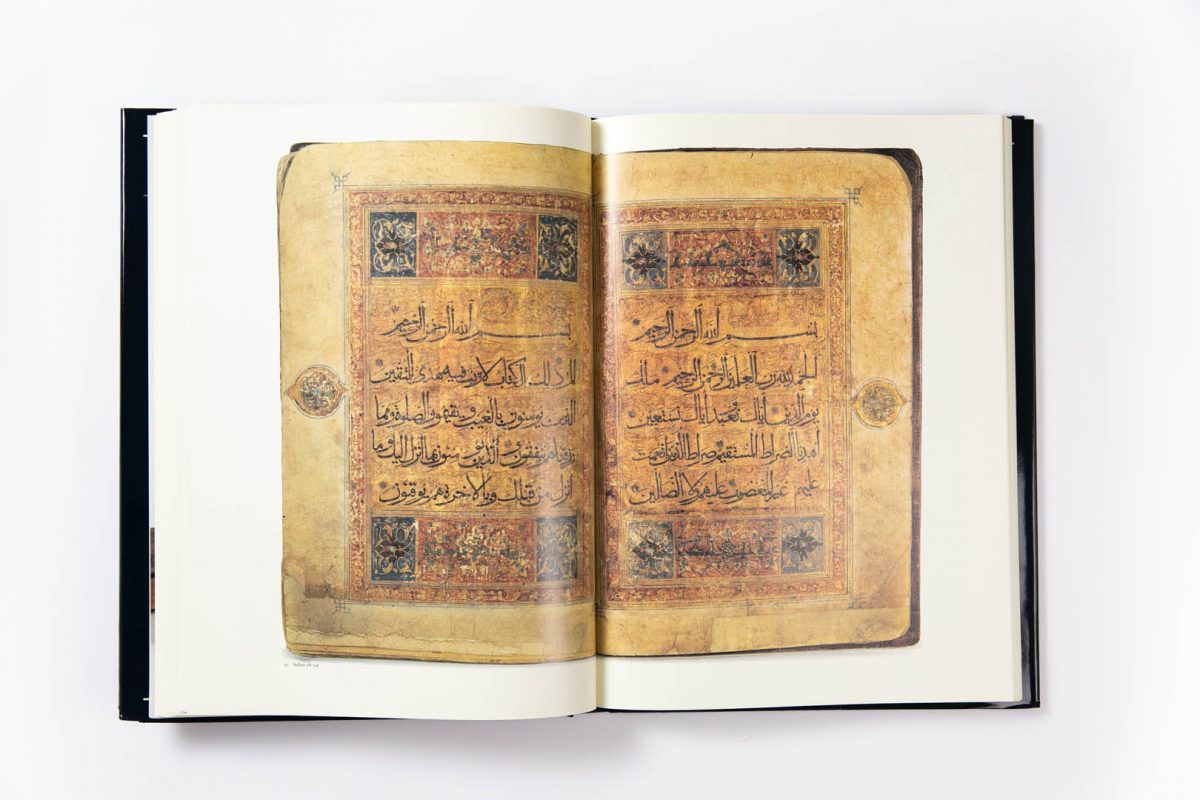 بسم الله الرحمن الرحيم
الحمد لله رب العلمين الرحمن الرحيم ملك
يوم الدين اياك نعبد واياك نستعين
اهدنا الصراط المستقيم صراط الذين انعمت
عليهم غير المغضوب عليهم ولا الضالين
بسم الله الرحمن الرحيم
الم ذلك الكتاب لا ريب فيه هدى للمتقين
الذين يومنون بالغيب ويقيمون الصلوة ومما
رزقناهم ينفقون والذين يومنون بما انزل اليك وما
انزل من قبلك وبالاخرة هم يوقنون